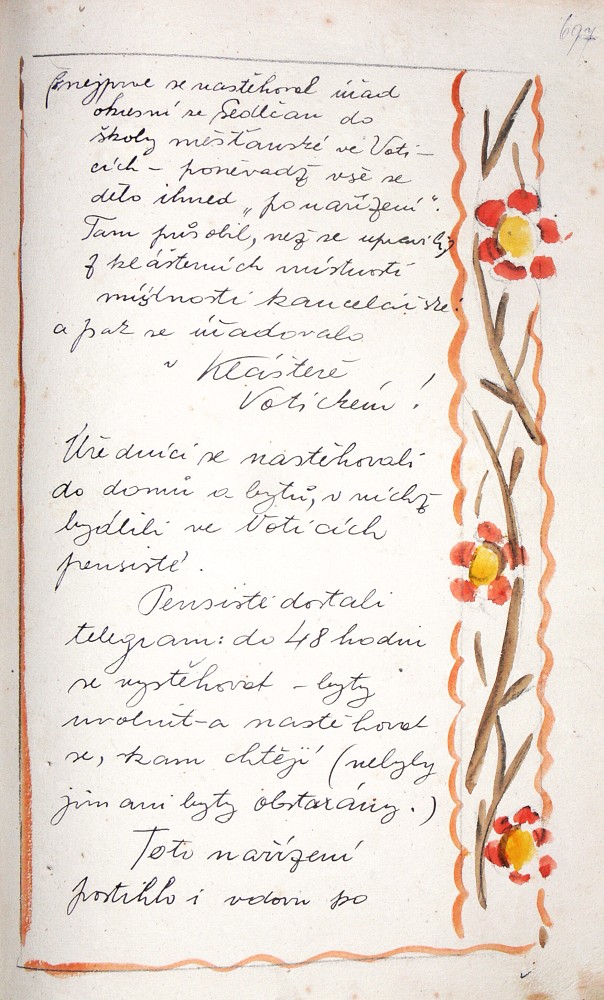 697
nejprve se nastěhoval úřad
okresní ze Sedlčan do
školy měšťanské ve Voti-
cích – poněvadž vše se
dělo ihned „po nařízení".
Tam působil, než se upravily
z klášterních místností
místnosti kancelářské
a pak se úřadovalo
v Klášteře
Votickém!
Úředníci se nastěhovali
do domů a bytů, v nichž
bydlili ve Voticích
pensisté.
Pensisté dostali
telegram: do 48 hodin
se vystěhovat – byty
uvolnit – a nastěhovat
se, kam chtějí (nebyly
jim ani byty obstarány.)
Toto nařízení
postihlo i vdovu po